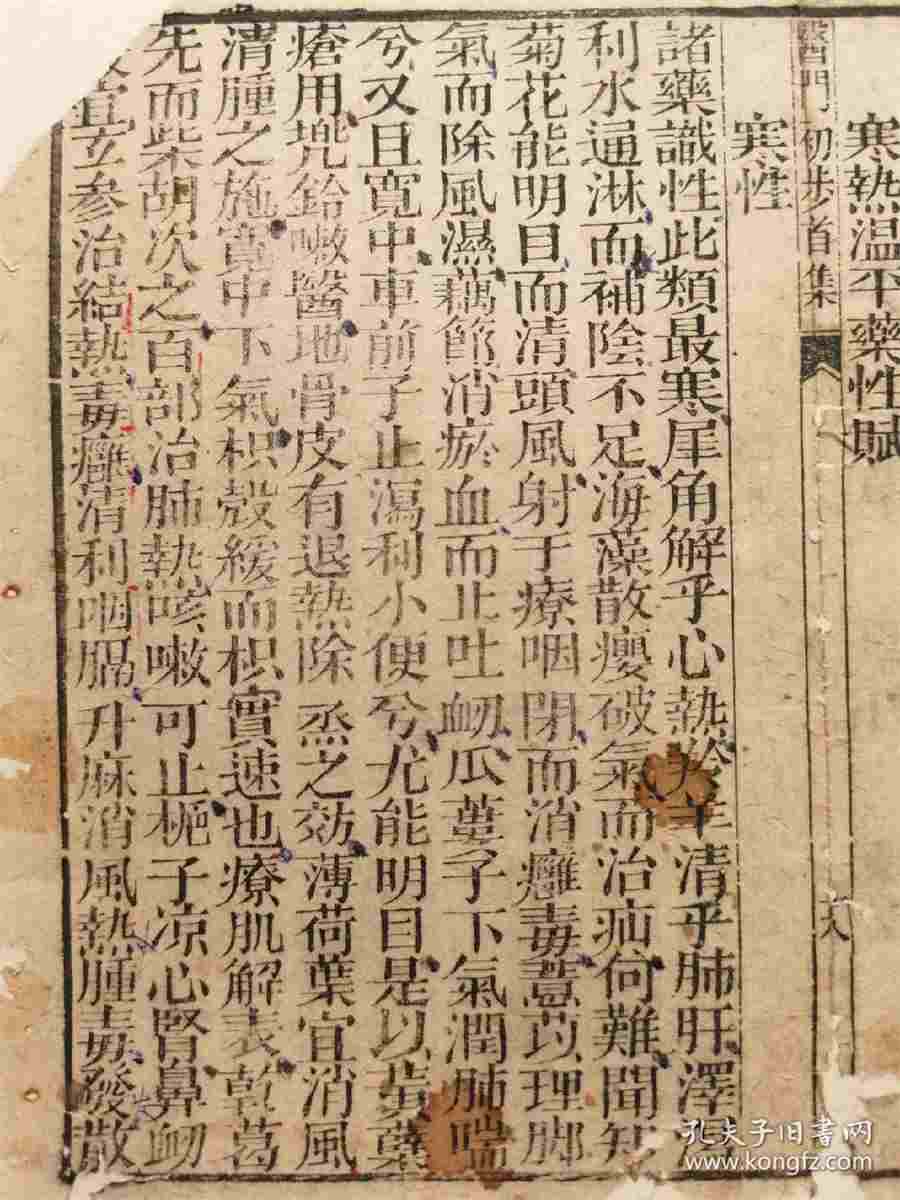 寒熱温平藥性賦
醫門初步首集
十八
寒性
諸藥識性此類最寒犀角解乎心熱羚羊清乎肺肝澤瀉
利水通淋而補陰不足海藻散癭破氣而治疝何難聞知
菊花能明目而清頭風射干療咽閉而消癰毒薏苡理脚
氣而除風濕藕節消瘀血而止吐衂瓜蔞子下氣潤肺喘
兮又且寛中車前子止瀉利小便兮尤能明目是以黄蘗
瘡用兠鈴嗽醫地骨皮有退熱除烝之効薄荷葉宜消風
清腫之施寛中下氣枳殼緩而枳實速也療肌解表乾葛
先而柴胡次之百部治肺熱咳嗽可止梔子凉心腎鼻衂
宜玄参治結熱毒癰清利咽膈升麻消風熱腫毒發散
孔夫子旧书网
www.kongfz.com